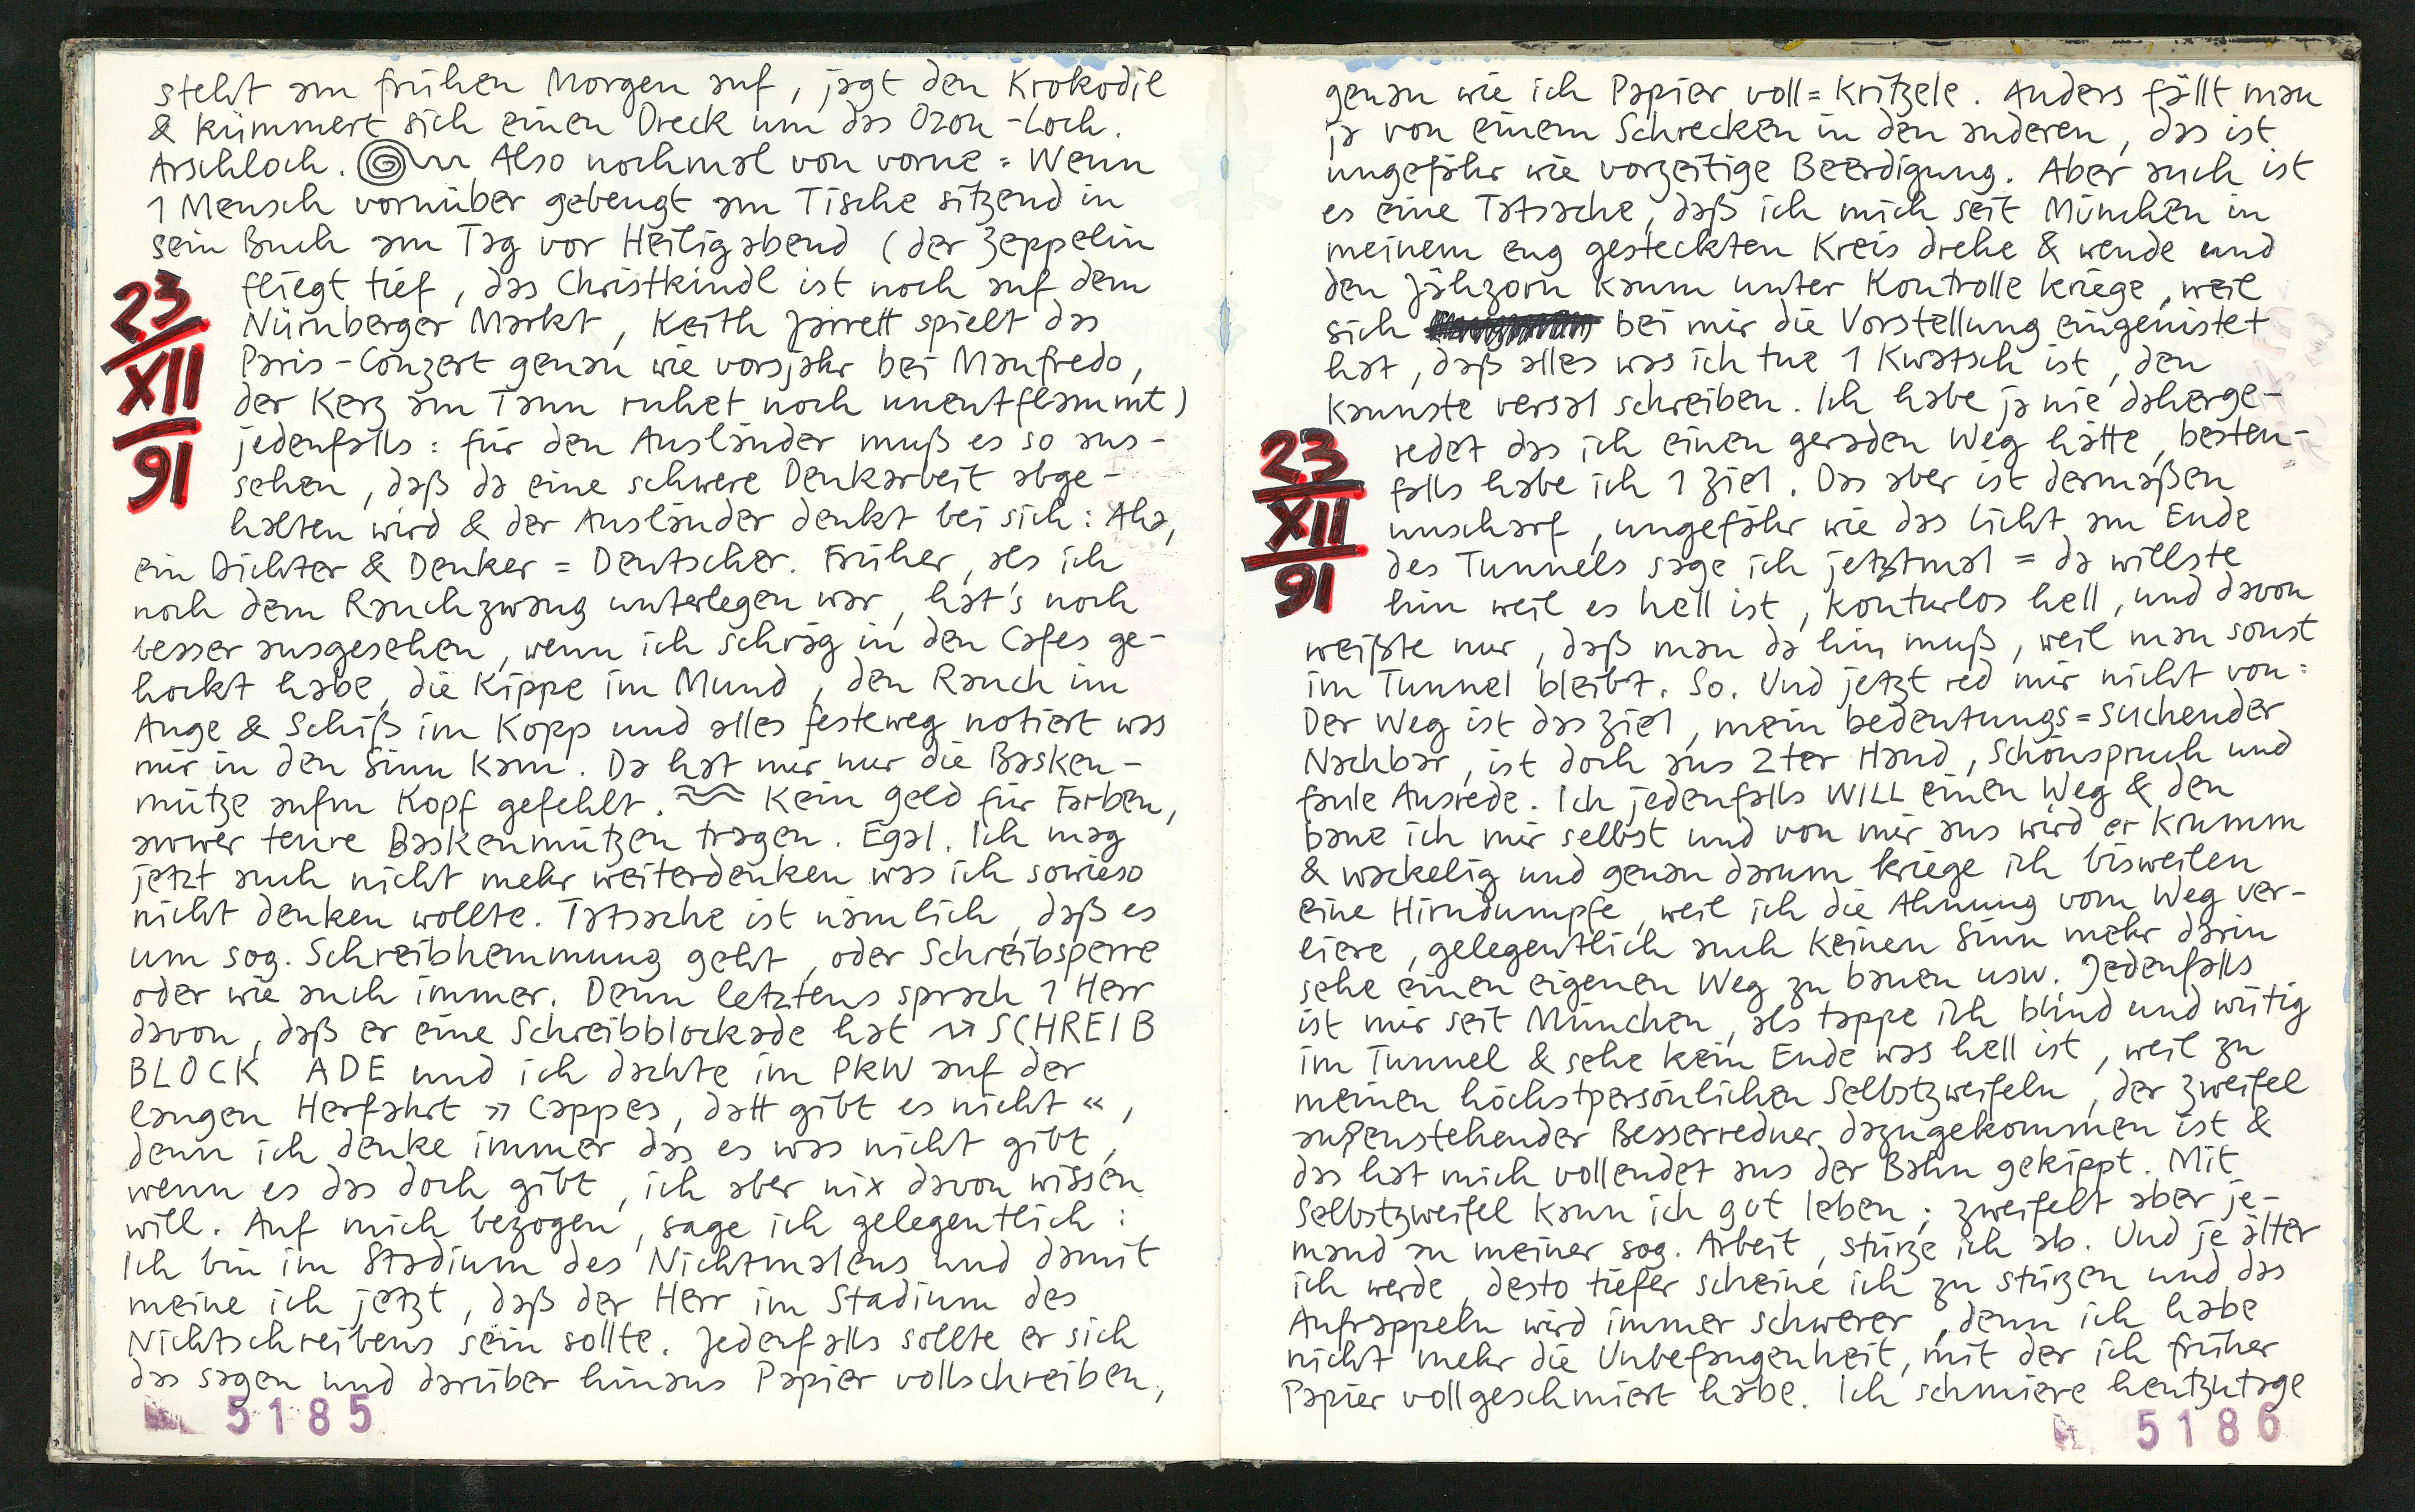 steht am frühen Morgen auf, jagt den Krokodil
& kümmert sich einen Dreck um das Ozon-Loch.
Arschloch. Also nochmal von vorne = Wenn
1 Mensch vornüber gebeugt am Tische sitzend in
sein Buch am Tag vor Heiligabend (der Zeppelin
fliegt tief, das Christkindl ist noch auf dem
Nürnberger Markt, Keith Jarrett spielt das
Paris-Conzert genau wie vorsjahr bei Manfredo,
der Kerz am Tann ruhet noch unentflammt)
jedenfalls: für den Ausländer muß es so aus-
sehen, daß da eine schwere Denkarbeit abge-
halten wird & der Ausländer denkt bei sich: Aha,
23
XII
91
ein Dichter & Denker = Deutscher. Früher, als ich
noch dem Rauchzwang unterlegen war, hat's noch
besser ausgesehen, wenn ich schräg in den Cafes ge-
hockt habe, die Kippe im Mund, den Rauch im
Auge & Schiß im Kopp und alles festeweg notiert was
mir in den Sinn kam. Da hat mir nur die Basken-
mütze aufm Kopf gefehlt. Kein Geld für Farben,
awwer teure Baskenmützen tragen. Egal. Ich mag
jetzt auch nicht mehr weiterdenken was ich sowieso
nicht denken wollte. Tatsache ist nämlich, daß es
um sog. Schreibhemmung geht, oder Schreibsperre
oder wie auch immer. Denn letztens sprach 1 Herr
davon, daß er eine Schreibblockade hat → SCHREIB
BLOCK ADE und ich dachte im PKW auf der
langen Herfahrt » Cappes, datt gibt es nicht «,
denn ich denke immer das es was nicht gibt,
wenn es das doch gibt, ich aber nix davon wissen
will. Auf mich bezogen, sage ich gelegentlich:
Ich bin im Stadium des Nichtmalens und damit
meine ich jetzt, daß der Herr im Stadium des
Nichtschreibens sein sollte. Jedenfalls sollte er sich
das sagen und darüber hinaus Papier vollschreiben,
5185
genau wie ich Papier voll=kritzele. Anders fällt man
ja von einem Schrecken in den anderen, das ist
ungefähr wie vorzeitige Beerdigung. Aber auch ist
es eine Tatsache, daß ich mich seit München in
meinem eng gesteckten Kreis drehe & wende und
den Jähzorn kaum unter Kontrolle kriege, weil
sich bei mir die Vorstellung eingenistet
hat, daß alles was ich tue 1 Kwatsch ist, den
kannste versal schreiben. Ich habe ja nie daherge-
redet das ich einen geraden Weg hätte, besten-
falls habe ich 1 Ziel. Das aber ist dermaßen
unscharf, ungefähr wie das Licht am Ende
des Tunnels sage ich jetztmal = da willste
hin weil es hell ist, konturlos hell, und davon
23
XII
91
weißte nur, daß man da hin muß, weil man sonst
im Tunnel bleibt. So. Und jetzt red mir nicht von:
Der Weg ist das Ziel, mein bedeutungs=suchender
Nachbar, ist doch aus 2ter Hand, Schönspruch und
faule Ausrede. Ich jedenfalls WILL einen Weg & den
baue ich mir selbst und von mir aus wird er krumm
& wackelig und genau darum kriege ich bisweilen
eine Hirndumpfe, weil ich die Ahnung vom Weg ver-
liere, gelegentlich auch keinen Sinn mehr darin
sehe einen eigenen Weg zu bauen usw. Jedenfalls
ist mir seit München, als tappe ich blind und wütig
im Tunnel & sehe kein Ende was hell ist, weil zu
meinen höchstpersönlichen Selbstzweifeln, der Zweifel
außenstehender Besserredner dazugekommen ist &
das hat mich vollendet aus der Bahn gekippt. Mit
Selbstzweifel kann ich gut leben; zweifelt aber je-
mand an meiner sog. Arbeit, stürze ich ab. Und je älter
ich werde, desto tiefer scheine ich zu stürzen und das
Aufrappeln wird immer schwerer, denn ich habe
nicht mehr die Unbefangenheit, mit der ich früher
Papier vollgeschmiert habe. Ich schmiere heutzutage
5186